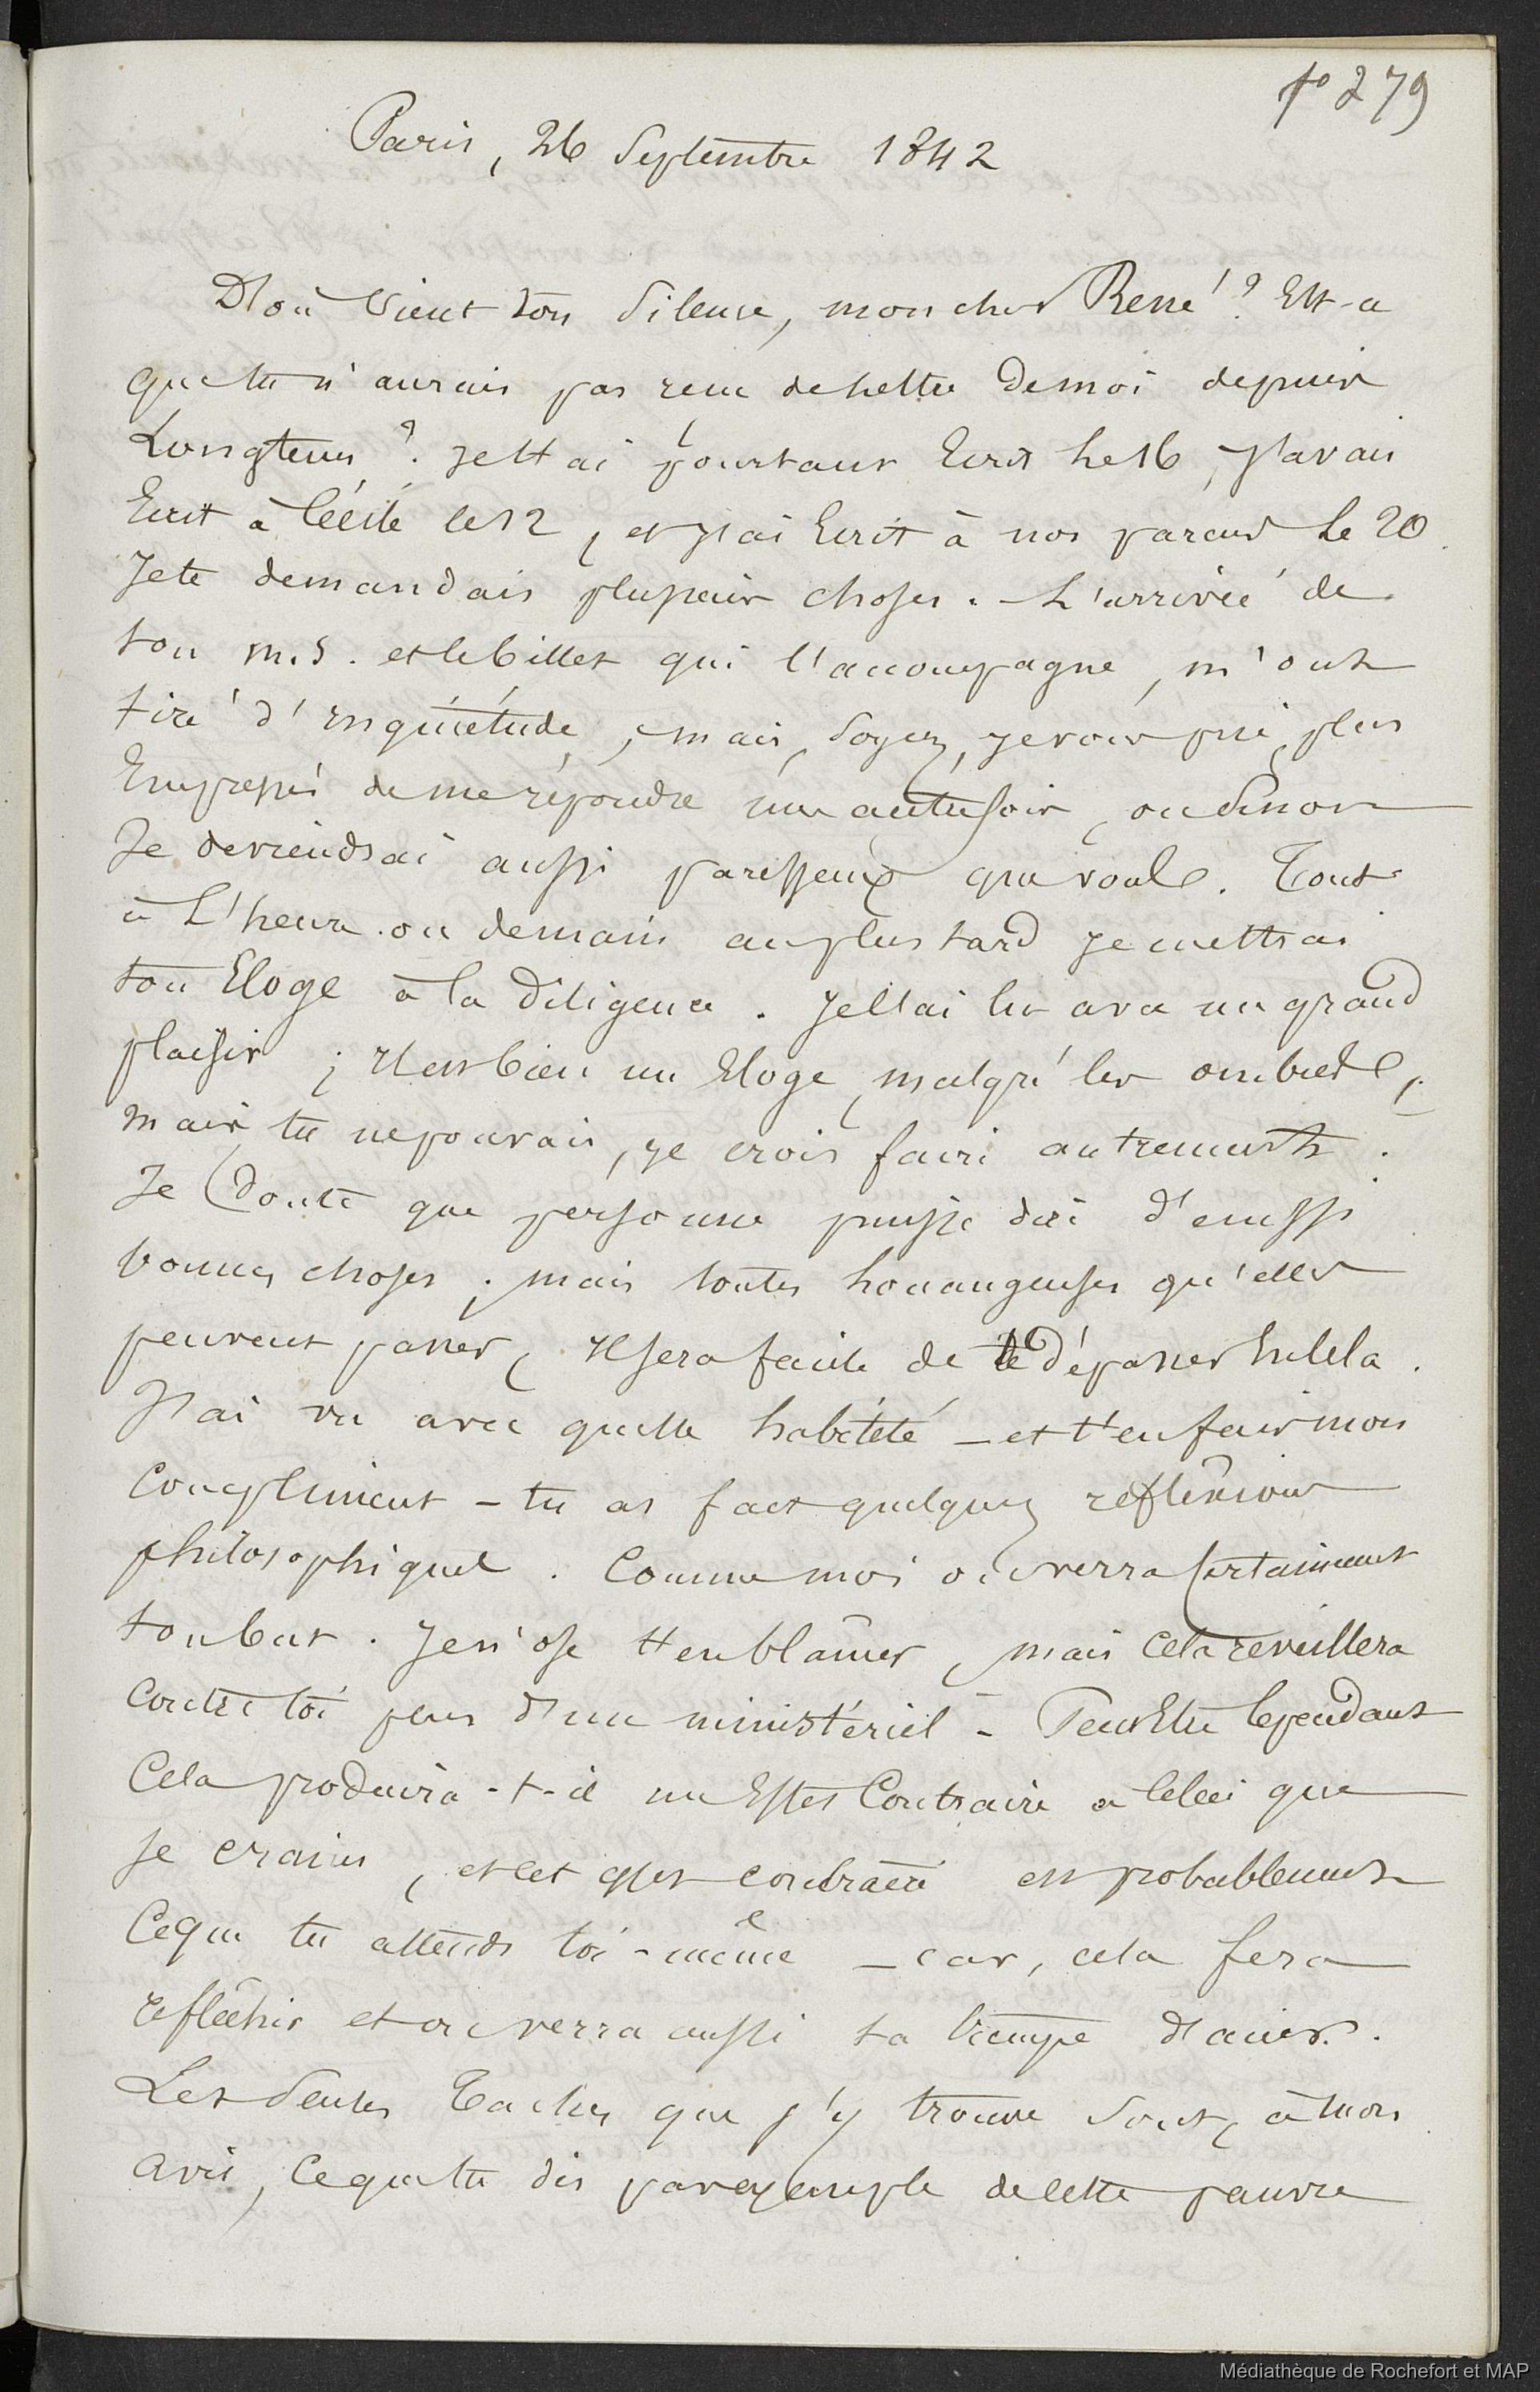 fo 279
Paris, 26 Septembre 1842
D'où vient ton silence, mon cher René ? Est-ce
que tu n'aurais pas reçu de lettre de moi depuis
Longtems ? je t'ai pourtant Ecrit le 16, j'avais
Ecrit à le 12, et j'ai Ecrit à nos parens le 20.
Je te demandais plusieurs choses. L'arrivée de
ton m.s. et le billet qui l'accompagne, m'ont
tiré d'inquiétude, mais, soyez, je vous prie, plus
Empressé de me répondre une autre fois, ou sinon
Je deviendrai aussi paresseux que vous. Tout
à L'heure ou demain au plus tard je mettrai
ton Eloge à la diligence. Je l'ai lu avec un grand
plaisir ; Il est bien un Eloge, malgré les ombres,
mais tu ne pouvais, je crois faire autrement.
Je Doute que personne puisse dire d'aussi
bonnes choses ; mais toutes louangeuses qu'elles
peuvent passer, Il sera facile de te dépasser En cela.
J'ai vu avec quelle habileté – et t'en fais mon
Compliment – tu as fait quelques reflexions
philosophiques. Comme moi on verra certainement
ton but. Je n'ose t'en blâmer, mais cela réveillera
contre toi plus d'un ministériel – Peut Etre Cependant
Cela produira-t-il un Effet Contraire à Celui que
je crains, et cet effet contraire est probablement
Ce que tu attends toi-même – car, cela fera
réfléchir et on verra aussi ta trempe d'acier.
Les seules taches que j'y trouve sont, à mon
avis, Ce que tu dis par exemple de cette pauvre
Médiathèque de Rochefort et MAP